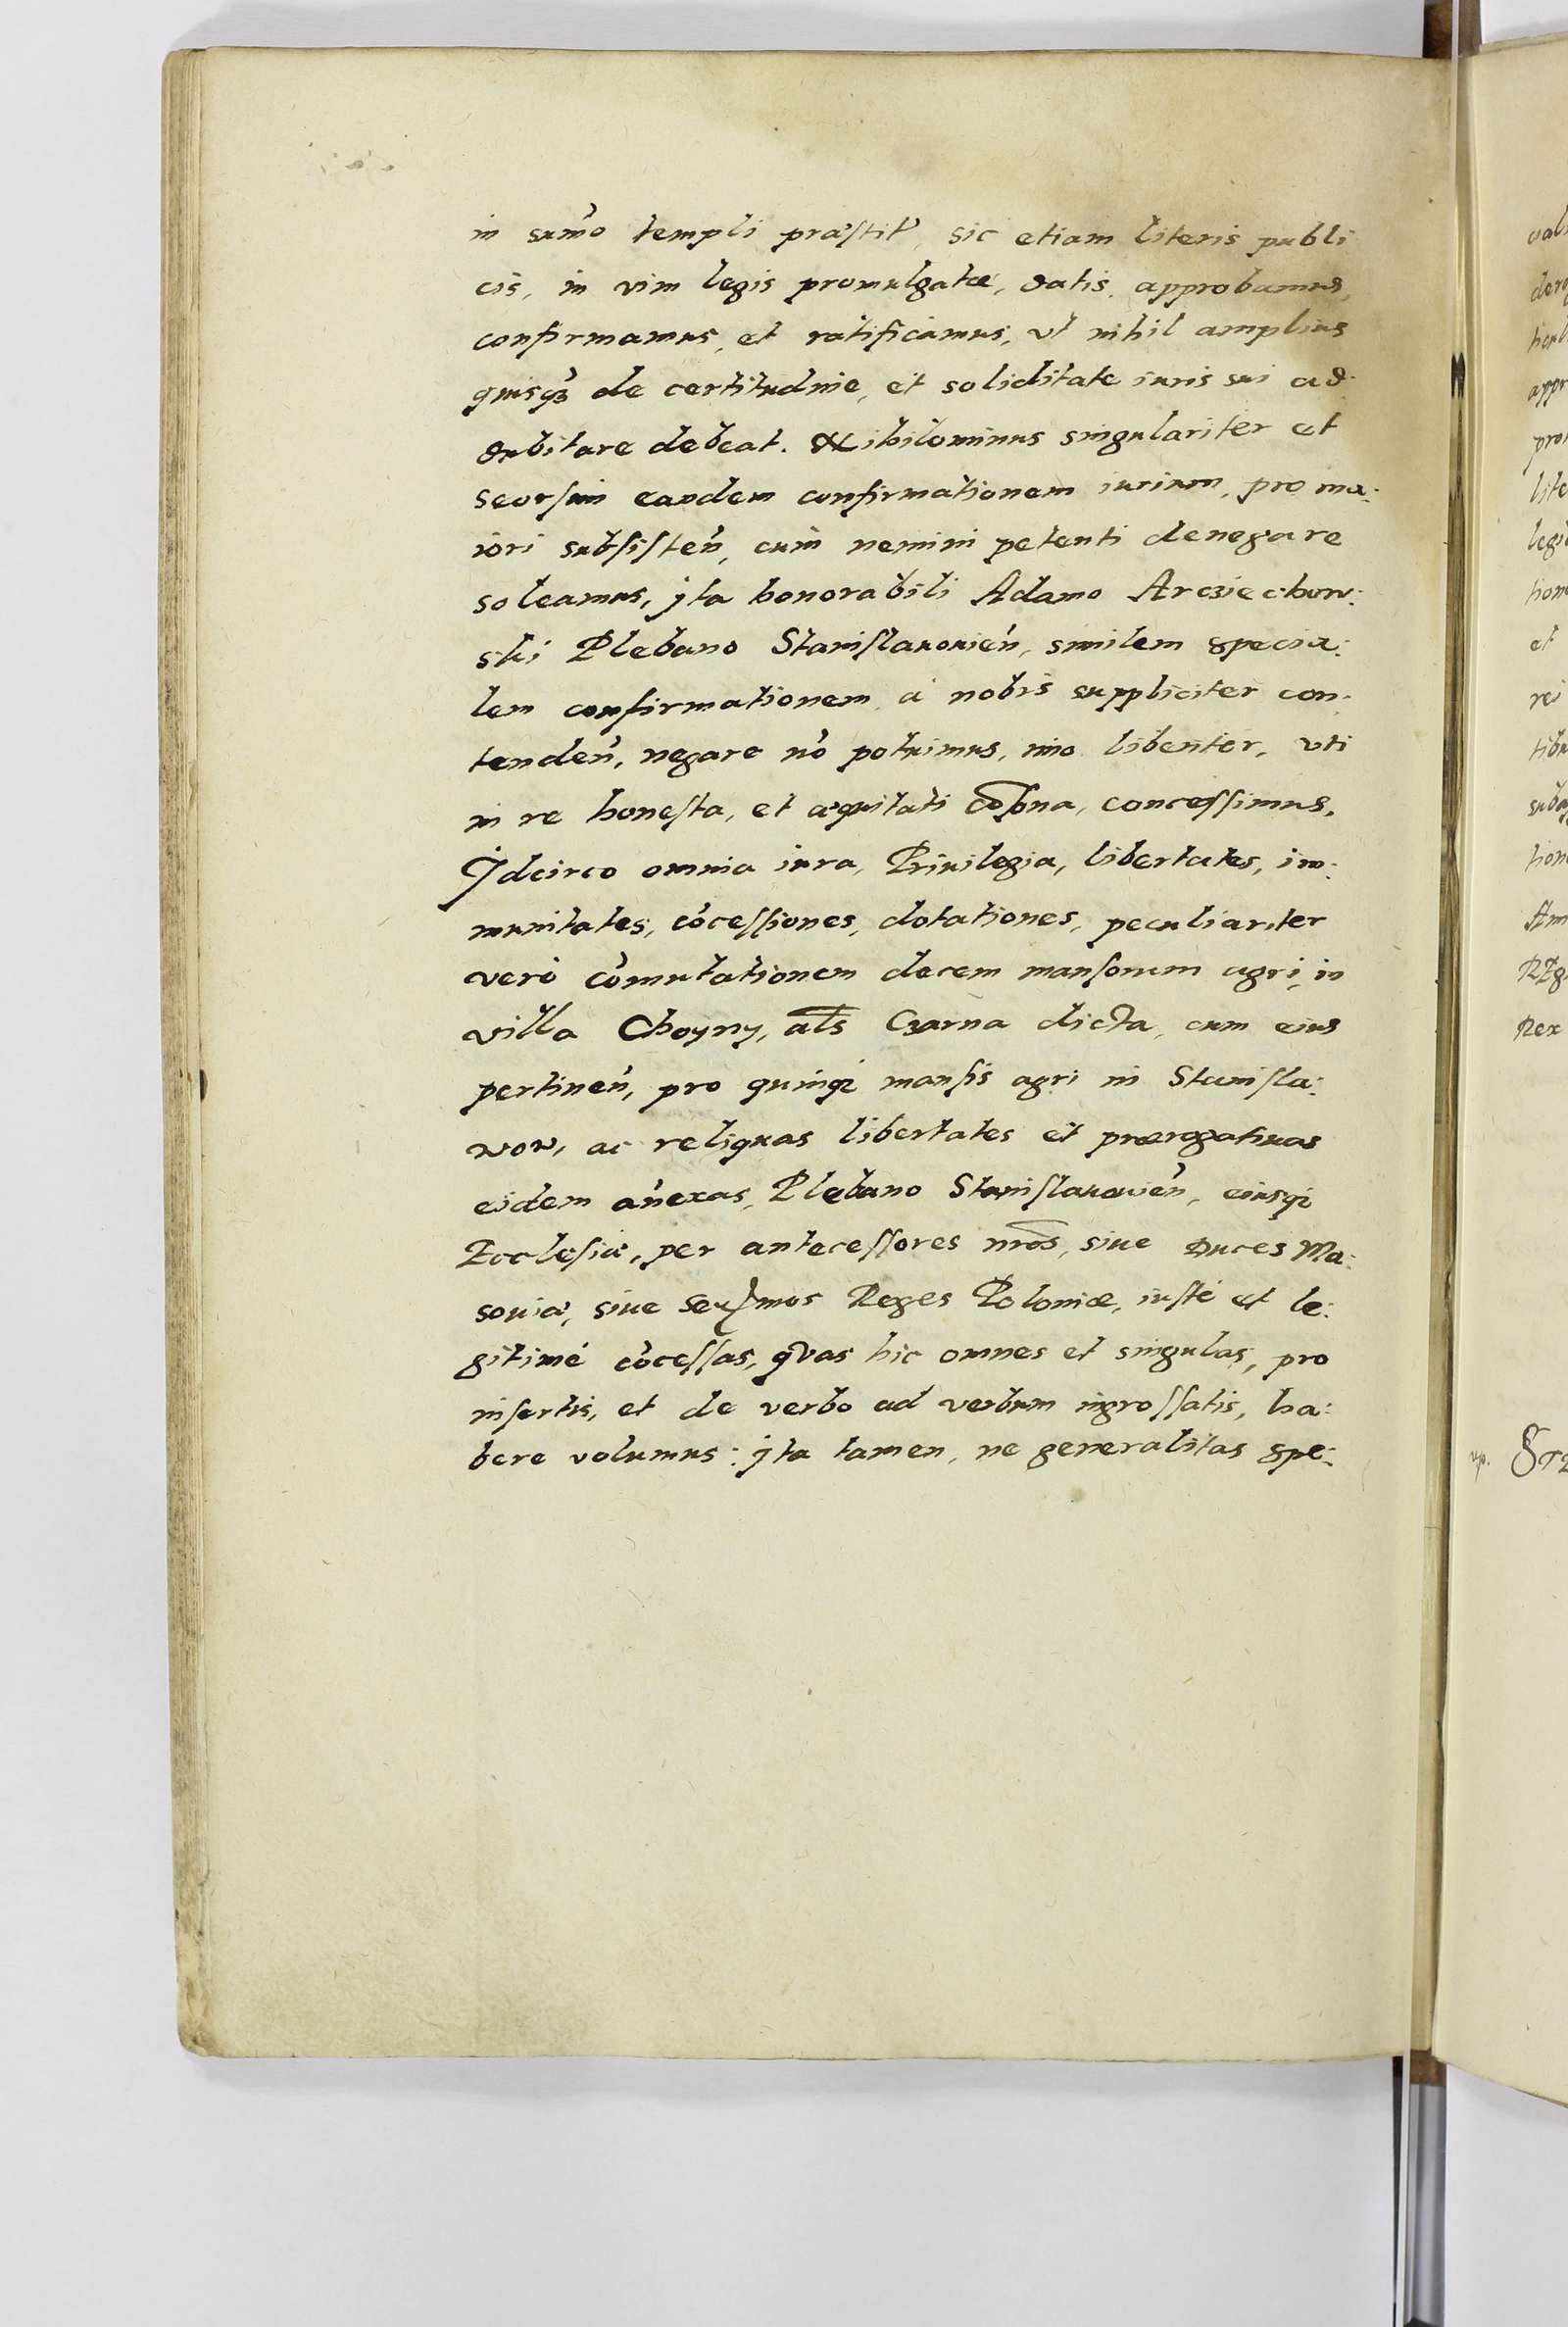 in sum̃o templi præstit̃, sic etiam literis publi
cis, in vim legis promulgatæ, datis, approbamus,
confirmamus, et ratificamus, vt nihil amplius
quisqȝ de certitudine, et soliditate iuris sui ad:
dubitare debeat. Nihilominus singulariter et
seorsim eandem confirmationem iurium, pro ma:
iori subsisteñ, cum nemini petenti denegare
soleamus, jta honorabili Adamo Arcziechow:
ski Plebano Stanislauouieñ, similem specia:
lem confirmationem à nobis suppliciter con:
tendeñ, negare nõ potuimus, imo libenter, vti
in re honesta, et æquitati cõsona, concessimus.
Jdcirco omnia iura, Priuilegia, libertates, im:
munitates, cõcessiones, dotationes, peculiariter
verò cõmutationem decem mansorum agri, in
villa Choyny, als Czarna dicta, cum eius
pertineñ, pro quinqȝ mansis agri in Stanisla:
wow, ac reliquas libertates et prærogatiuas
eidem añexas, Plebano Stanislauouieñ, eiusqȝ
Ecclesiæ, per antecessores nr̃os, siue Duces Ma:
souiæ, siue Ser̃mos Reges Poloniæ, iustè et le:
gitimè cõcessas, quas hic omnes et singulas, pro
insertis, et de verbo ad verbum ingrossatis, ha:
bere volumus: jta tamen, ne generalitas spe: